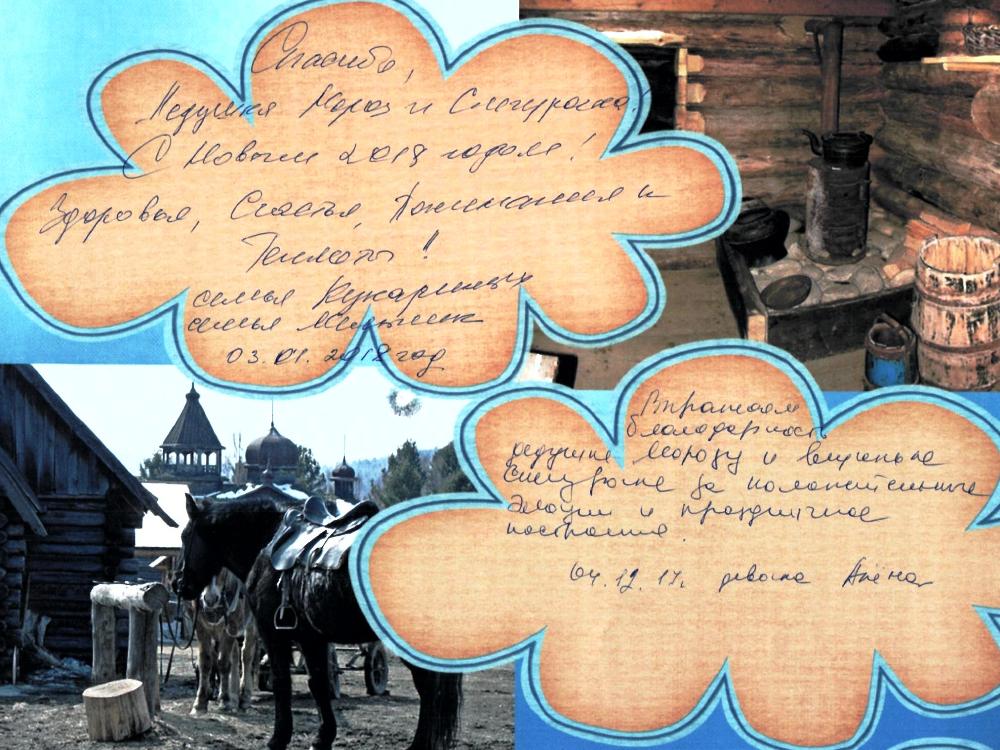 Спасибо,
Дедушка Мороз и Снегурочка!
С Новым 2018 годом!
Здоровья, Счастья, Понимания и
Теплоты!
семья Кукариных
семья
03.01.2018 год
Выражаем
благодарность
дедушке Морозу и внученьке
Снегурочке за положительные
эмоции и праздничное
настроение.
04.12.17. девочка Алёна